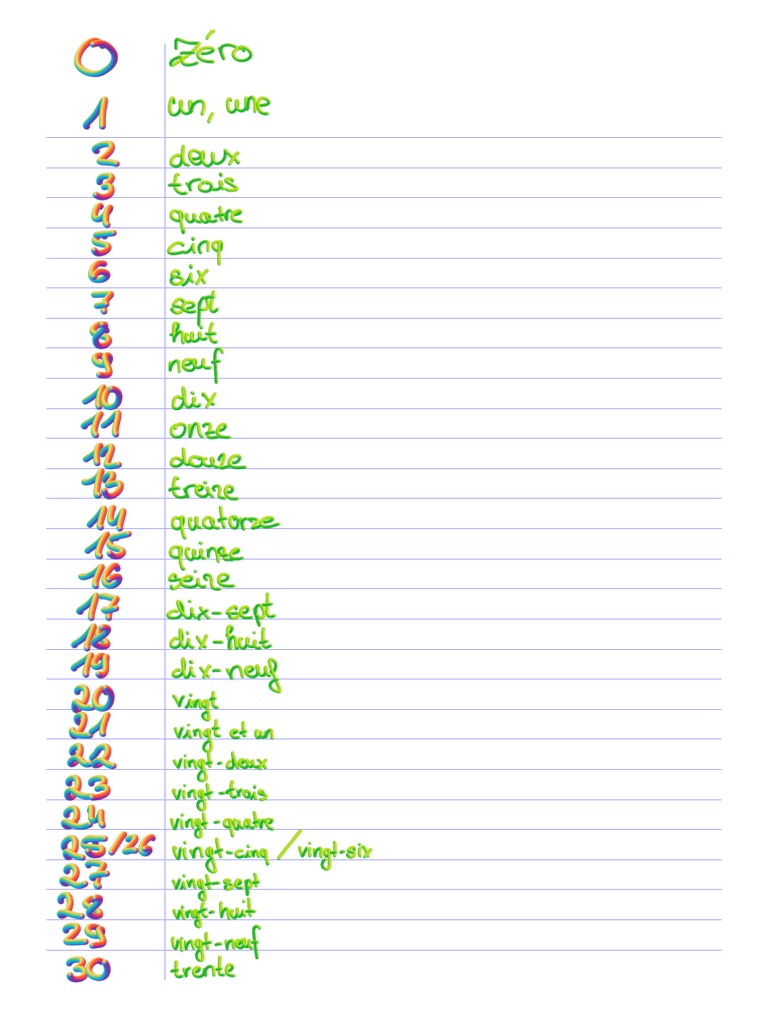 0 zéro
1 un, une
2 deux
3 trois
4 quatre
5 cinq
6 six
7 sept
8 huit
9 neuf
10 dix
11 onze
12 douze
13 treize
14 quatorze
15 quinze
16 seize
17 dix-sept
18 dix-huit
19 dix-neuf
20 vingt
21 vingt et un
22 vingt-deux
23 vingt-trois
24 vingt-quatre
25/26 vingt-cinq / vingt-six
27 vingt-sept
28 vingt-huit
29 vingt-neuf
30 trente